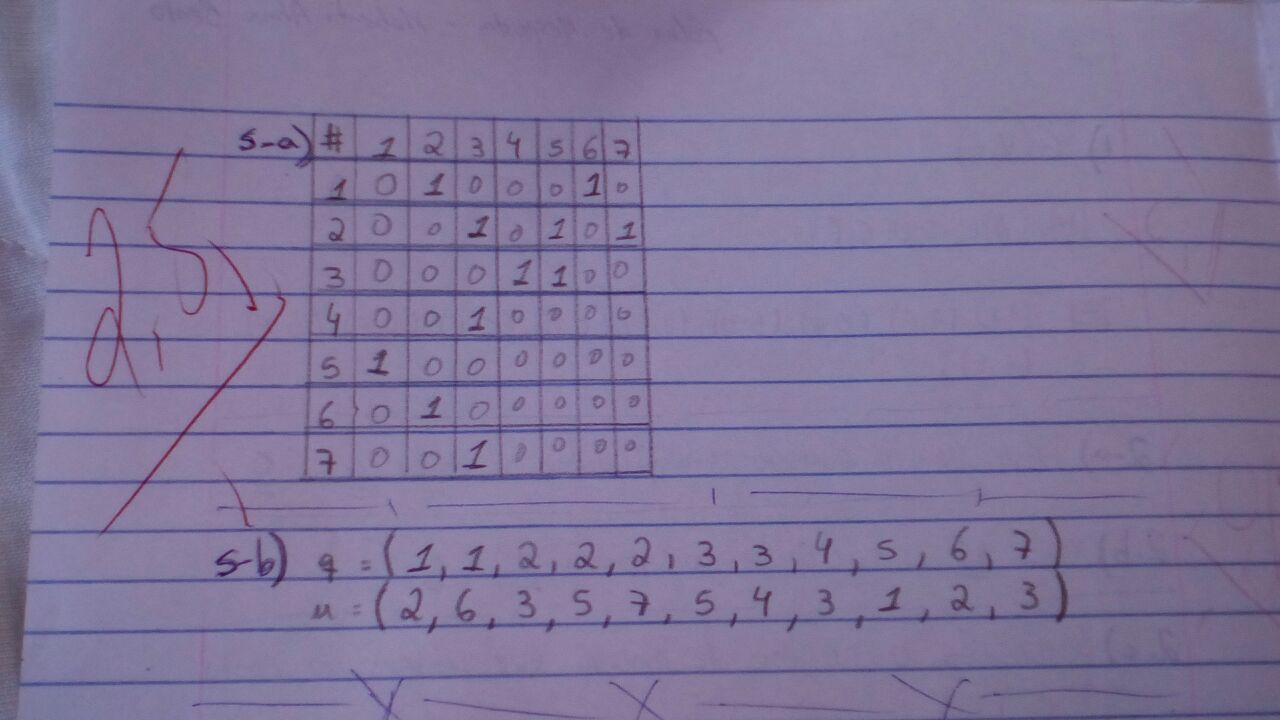 5-a) # 1 2 3 4 5 6 7
1 0 1 0 0 0 1 0
2 0 0 1 0 1 0 1
3 0 0 0 1 1 0 0
4 0 0 1 0 0 0 0
5 1 0 0 0 0 0 0
6 0 1 0 0 0 0 0
7 0 0 1 0 0 0 0
5-b) g = (1, 1, 2, 2, 2, 3, 3, 4, 5, 6, 7)
u = (2, 6, 3, 5, 7, 5, 4, 3, 1, 2, 3)